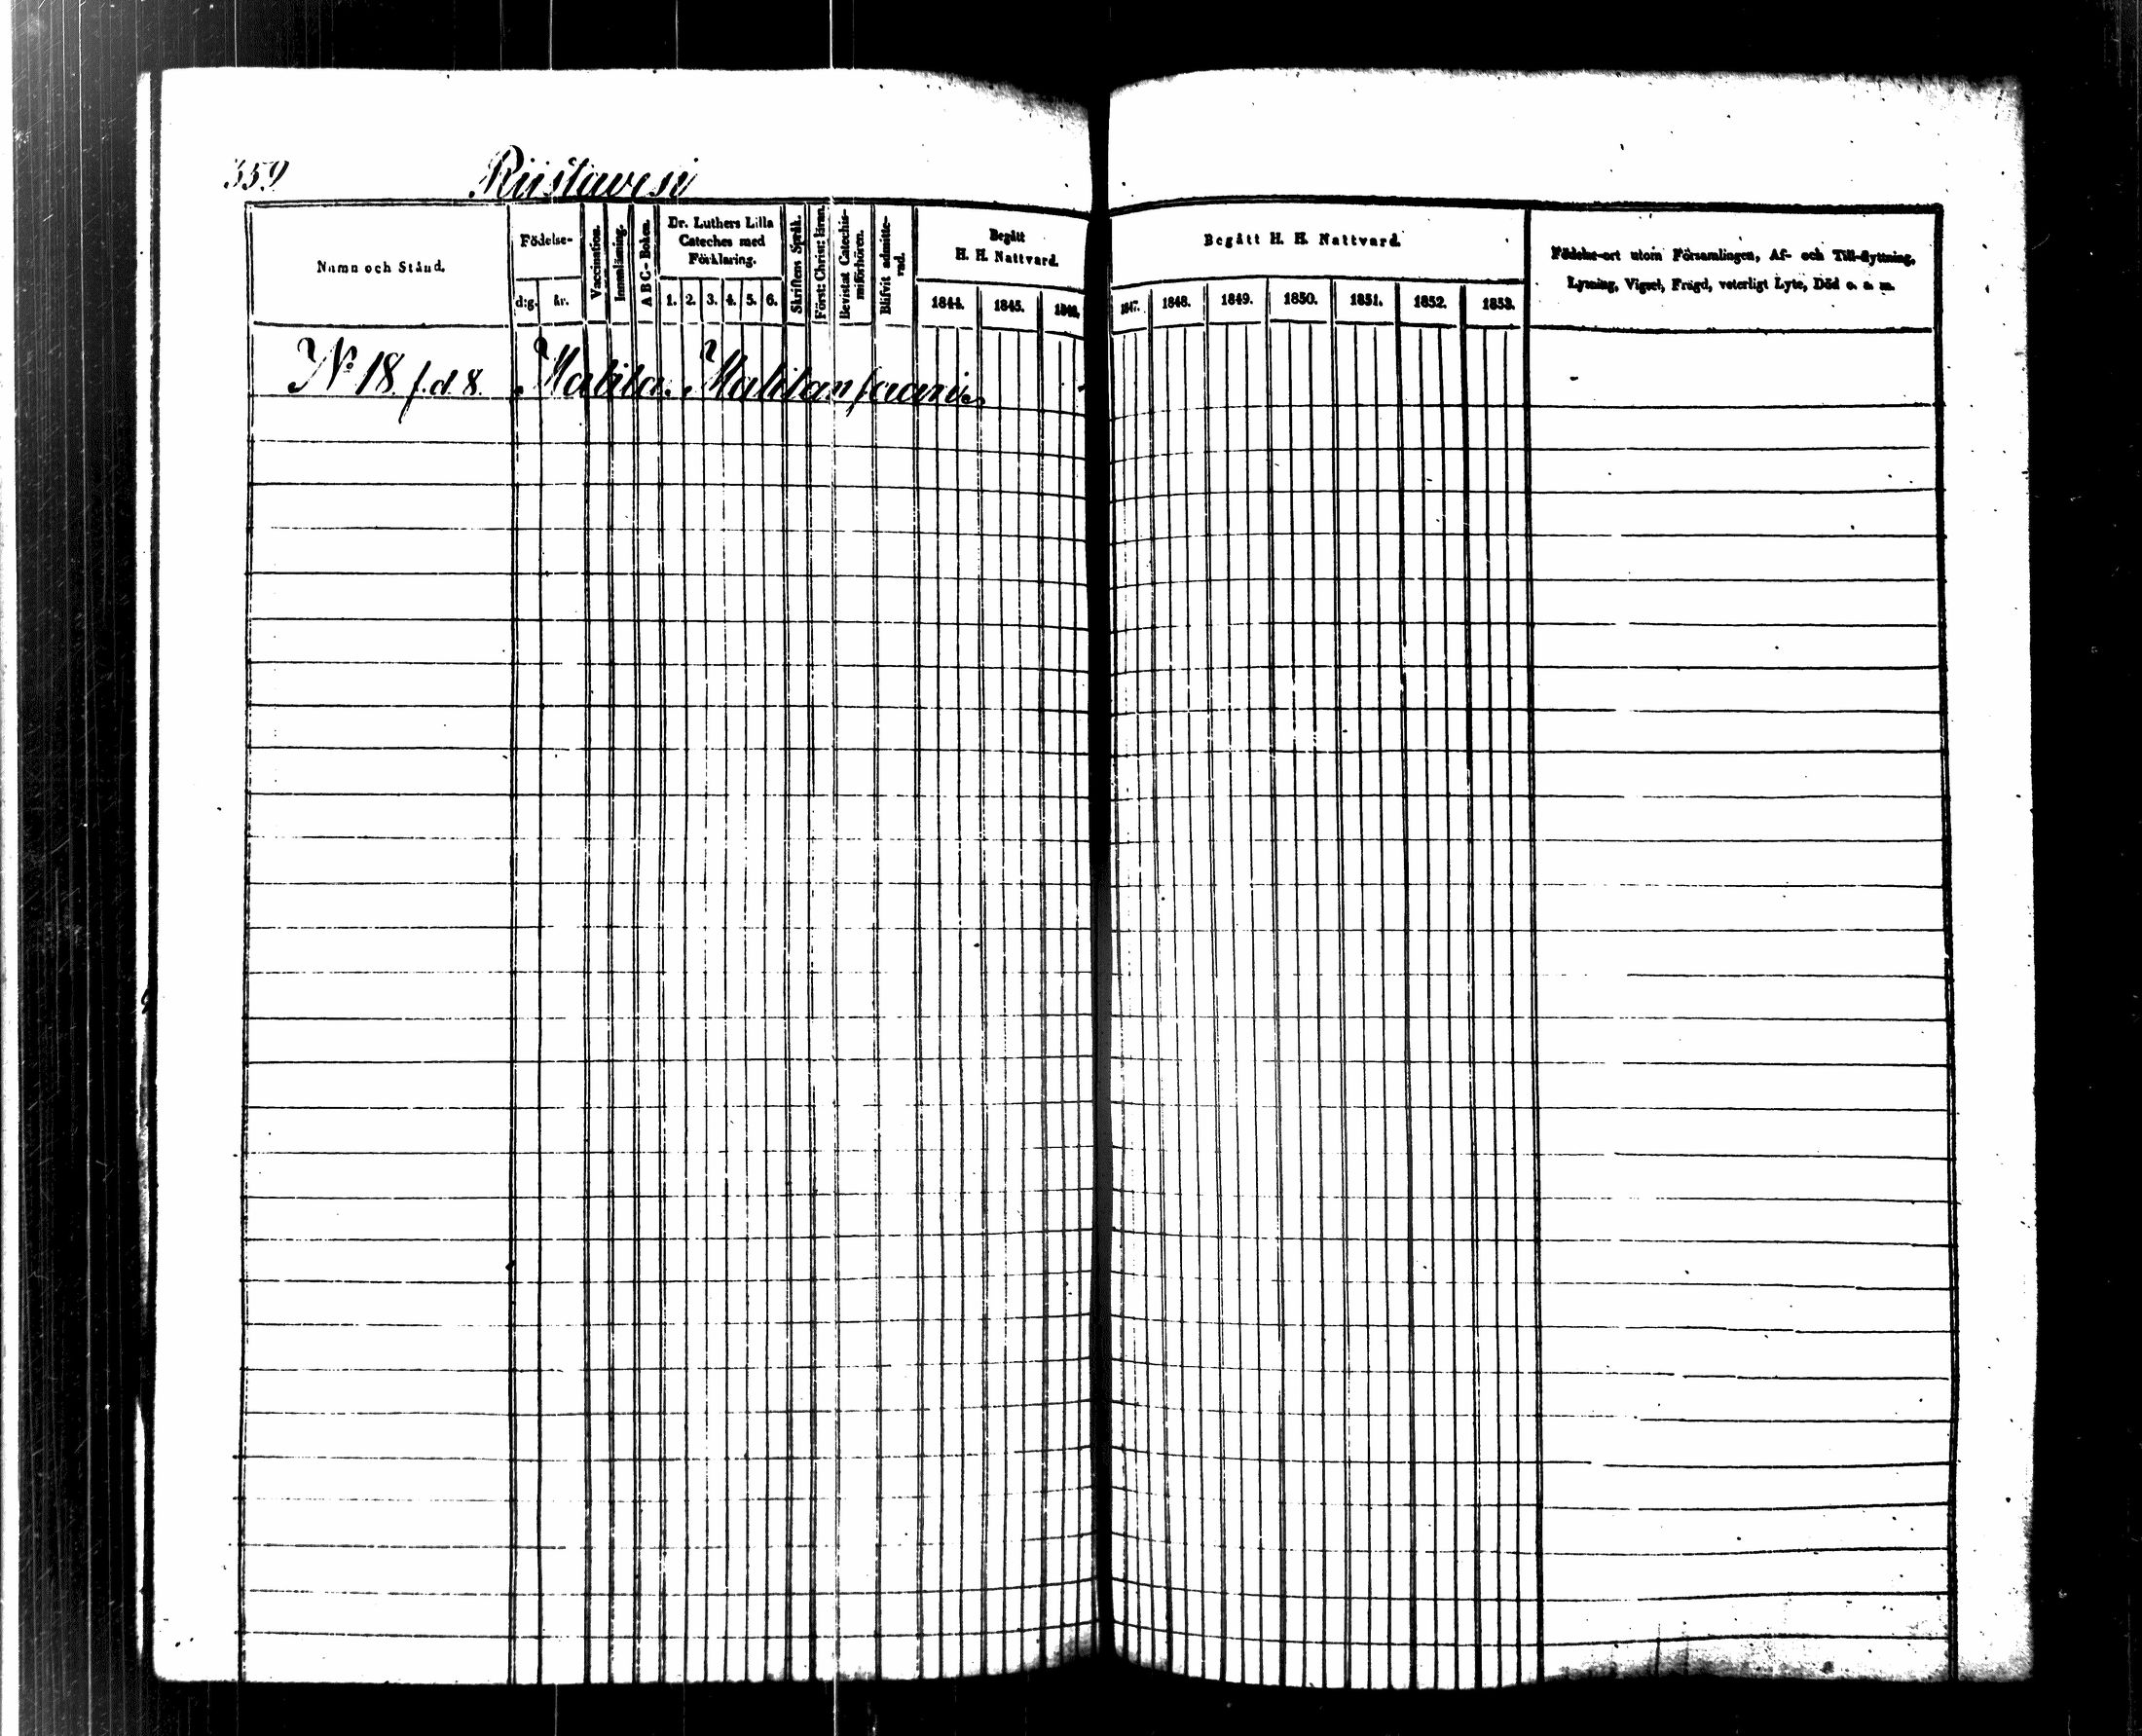 359 Riistavesi
Namn och Stånd.
Födelse-
d:g. år.
Vaccination.
Innanläsning.
A B C-Boken.
Dr. Luthers Lilla
Cateches med
Förklaring.
1. 2. 3. 4. 5. 6.
Skriftens Språk.
Först: Christ: läran.
Bevistat Catechis-
miförhören.
Blifvit admitte-
rad.
Begått
H. H. Nattvard.
1844. 1845. 1846.
Begått H. H. Nattvard.
1847. 1848. 1849. 1850. 1851. 1852. 1853.
Födelse-ort utom Församlingen, Af- och Till-flyttning,
Lysning, Vigsel, Frägd, veterligt Lyte, Död o. s. m.
No 18. f.d. 8. Matila. Matilansaari